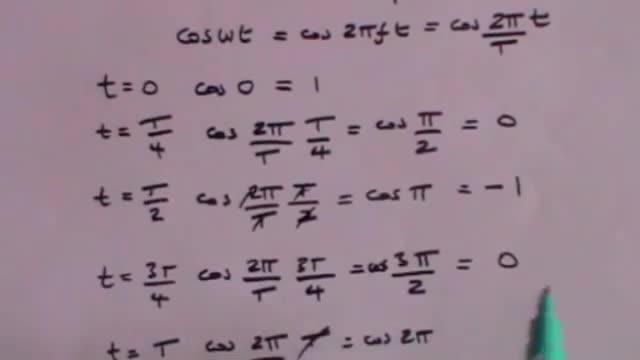 cos ωt = cos 2πft = cos 2π/T t
t = 0 cos 0 = 1
t = T/4 cos 2π/T T/4 = cos π/2 = 0
t = T/2 cos 2π/T T/2 = cos π = -1
t = 3T/4 cos 2π/T 3T/4 = cos 3π/2 = 0
t = T cos 2π T = cos 2π